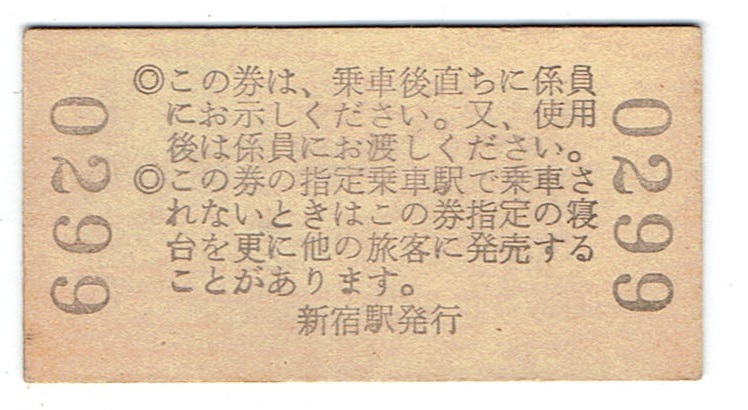 ◎この券は、乗車後直ちに係員
にお示しください。又、使用
後は係員にお渡しください。
◎この券の指定乗車駅で乗車さ
れないときはこの券指定の寝
台を更に他の旅客に発売する
ことがあります。
新宿駅発行
0299
0299